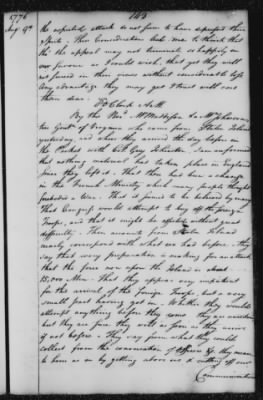 143
1776
Aug 9th
the expected attack do not seem to have depressed their
Spirits. These Considerations lead me to think that
tho' the appeal may not terminate so happily in
our favour as I could wish, that yet they will
not succeed in their views without considerable loss
Any advantage they may get I trust will cost
them dear.
8 Clock A.M.
By the Revd Mr
two Gentn of Virginia who came from Staten Island
yesterday, and where they arrived the day before in
the Packet with Col Guy I am informed
that nothing material had taken place in England
when they left it. That there had been a change
in the French Ministry which many people thought
foreboded a War. That it seemed to be believed by many
that Congress would attempt to buy off the foreign
Troops, and that it might be effected without great
difficulty. Their accounts from Staten Island
nearly correspond with what we had before. They
say that every preparation is making for an attack
that the force now upon the Island is about
15,000 Men. That they appear very impatient
for the arrival of the foreign Troops but a very
small part having got in. Whether they would
attempt anything before they come they are uncertain
but they are sure they will as soon as they arrive
if not before. They say from what they could
collect from the conversation of Officers &c they mean
to hem us in by getting above us & cutting off our
Communication